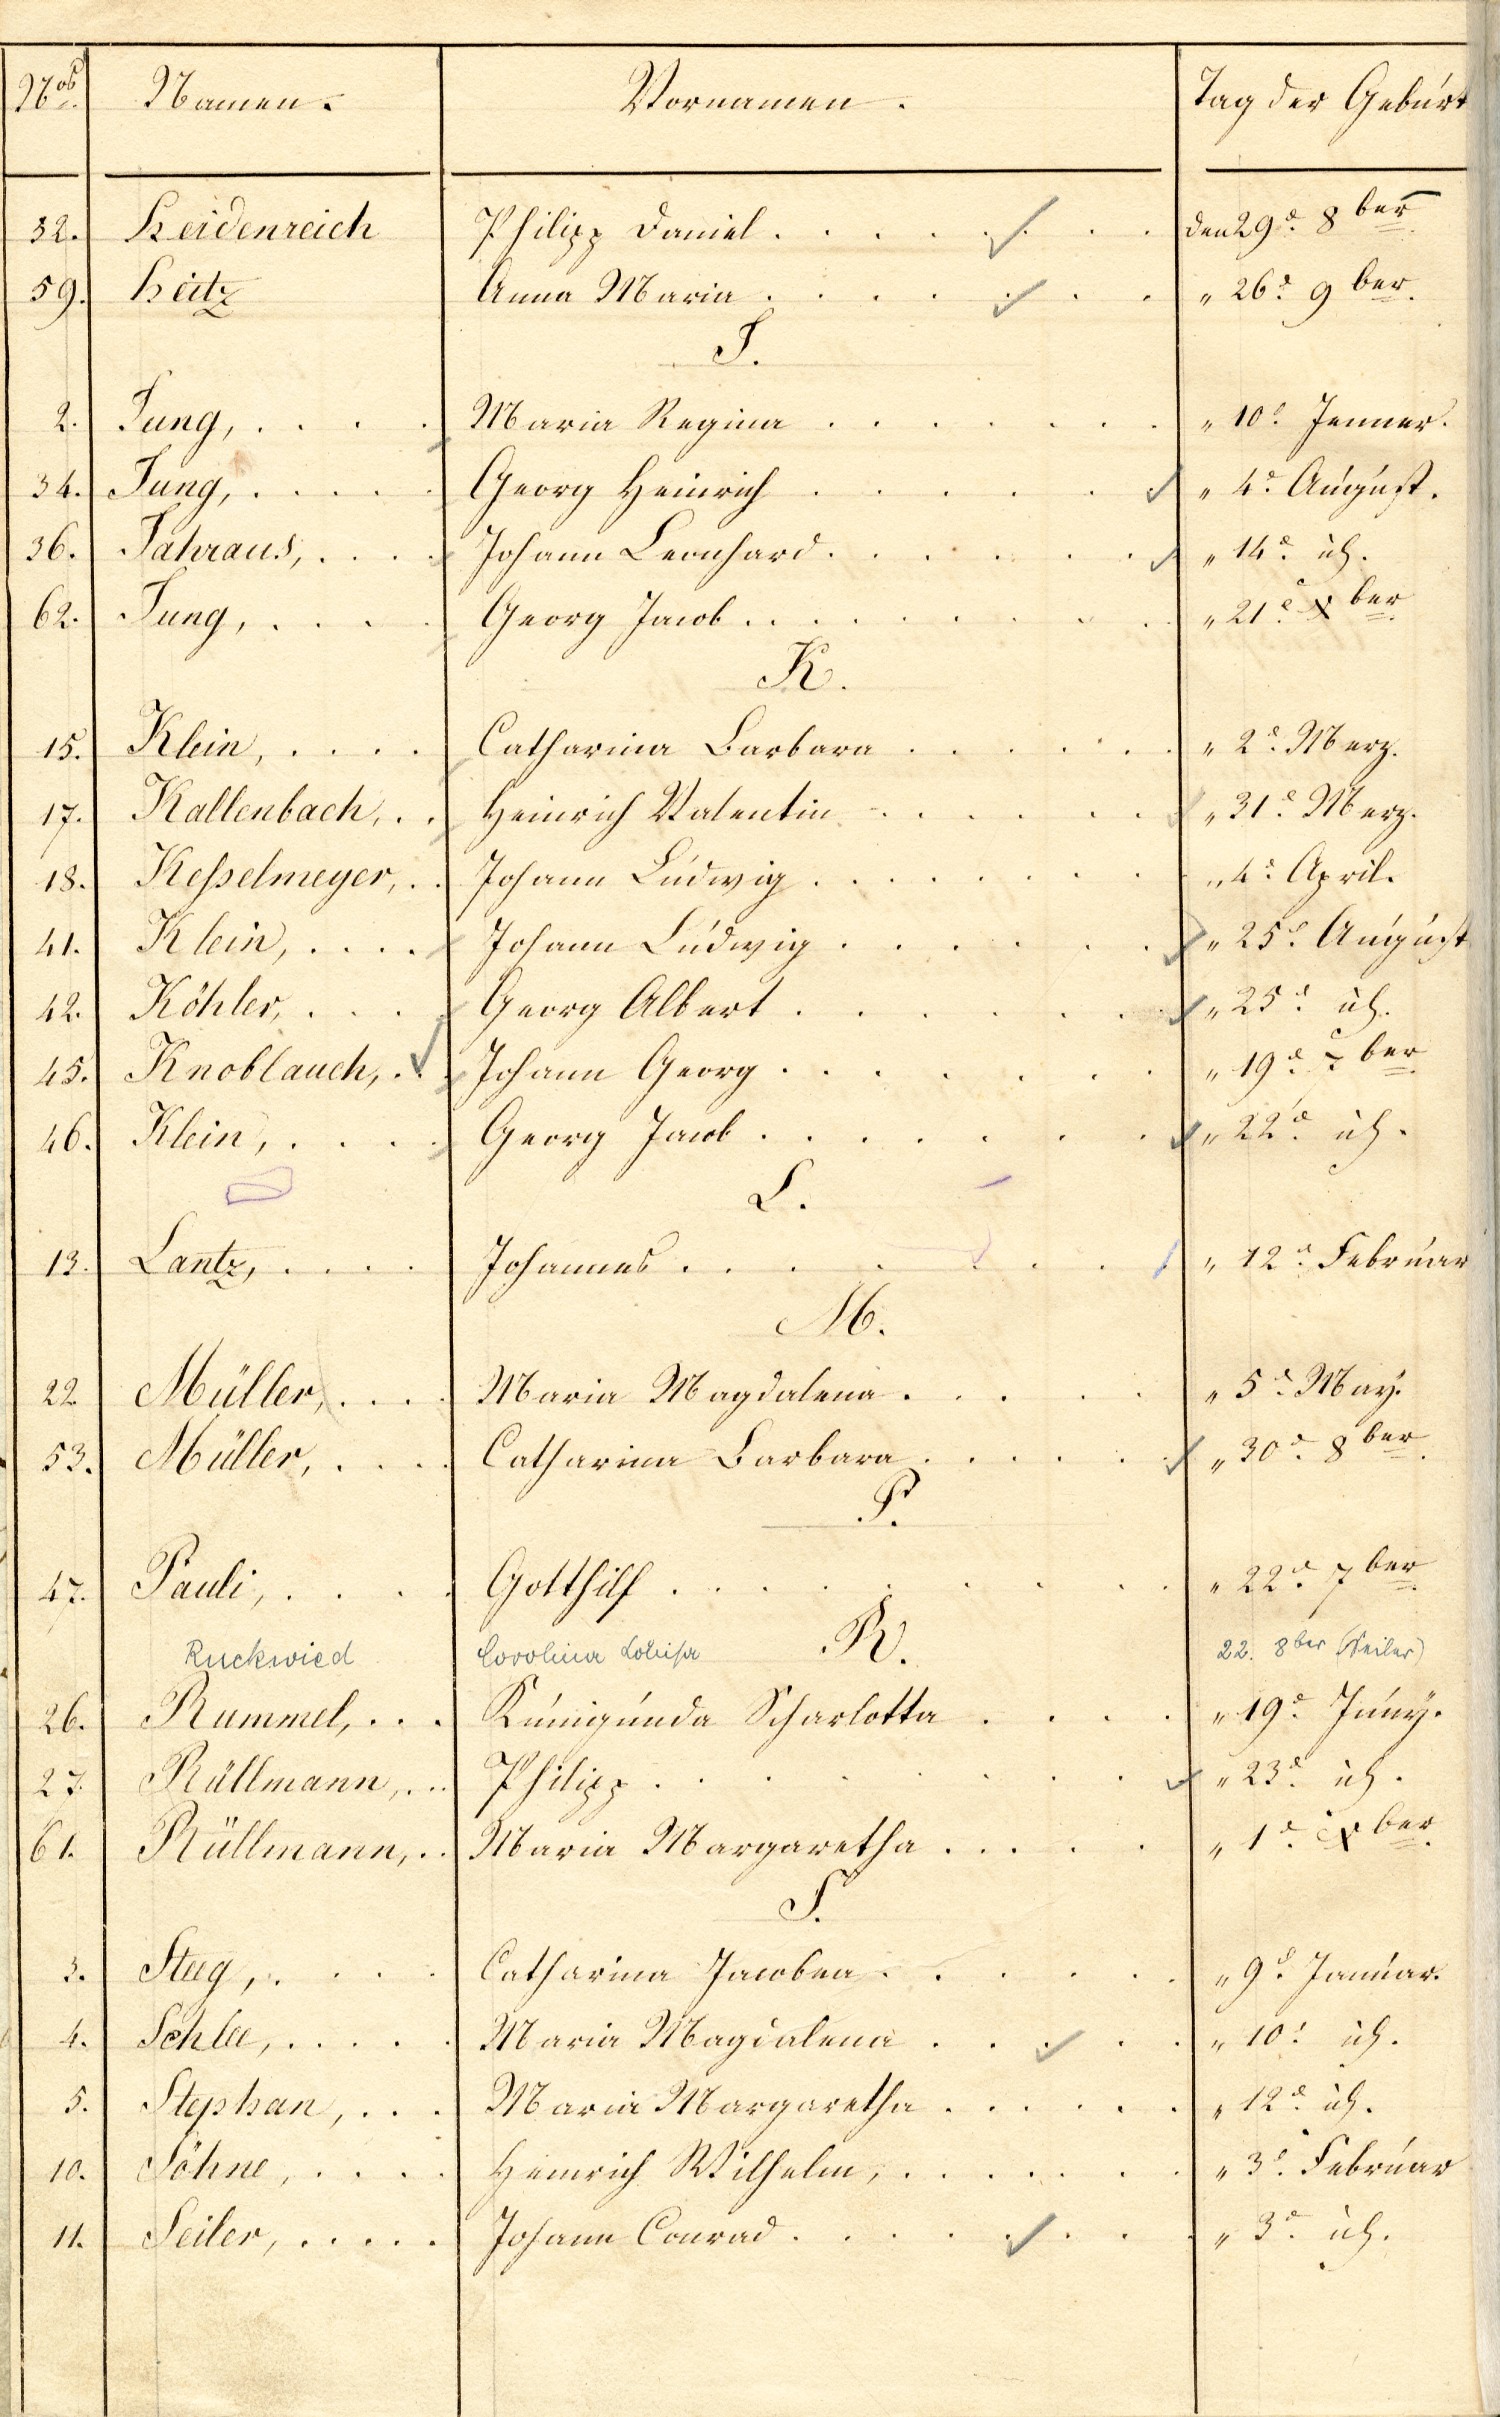 Nos. Namen. Vornamen. Tag der Geburt
32. Heidenreich Philipp Daniel . . . . . . . den 29d. 8ber.
59. Heitz Anna Maria . . . . . . . „ 26d. 9ber.
J.
2. Jung, . . . . Maria Regina . . . . . . . „ 10d. Jenner.
34. Jung, . . . . . Georg Heinrich . . . . . „ 4d. August.
36. Jahraus, . . . . Johann Leonhard . . . . . . „ 14d. id.
62. Jung, . . . . Georg Jacob . . . . . . . . „ 21d. Xber.
K.
15. Klein, . . . . Catharina Barbara . . . . . „ 2d. Merz.
17. Kallenbach, . . Heinrich Valentin . . . . . . „ 31d. Merz.
18. Kesselmeyer, . . Johann Ludwig . . . . . . . „ 4d. April.
41. Klein, . . . . Johann Ludwig . . . . . . „ 25d. August
42. Köhler, . . . . Georg Albert . . . . . . „ 25d. id.
45. Knoblauch, . . Johann Georg . . . . . . . „ 19d. 7ber.
46. Klein, . . . . Georg Jacob . . . . . . . „ 22d. id.
L.
13. Lantz, . . . . Johannes . . . . . . . . „ 12d. Februar
M.
22. Müller, . . . . Maria Magdalena . . . . . „ 5d. May.
53. Müller, . . . . Catharina Barbara . . . . . . „ 30d. 8ber.
P.
47. Pauli, . . . . Gotthilf . . . . . . . . . „ 22d. 7ber.
R.
Ruckwied Carolina Louisa 22. 8ber (Seiler)
26. Rummel, . . . Kunigunda Scharlotta . . . . „ 19d. Juny.
27. Rüllmann, . . . Philipp . . . . . . . . „ 23d. id.
61. Rüllmann, . . Maria Margaretha . . . . . „ 1d. Xber.
S.
3. Steeg, . . . . Catharina Jacobea . . . . . . „ 9d. Januar.
4. Schlee, . . . . . Maria Magdalena . . . . . „ 10d. id.
5. Stephan, . . . Maria Margaretha . . . . . „ 12d. id.
10. Söhne, . . . . Heinrich Wilhelm, . . . . . . „ 3d. Februar
11. Seiler, . . . . . Johann Conrad . . . . . . . „ 3d. id.